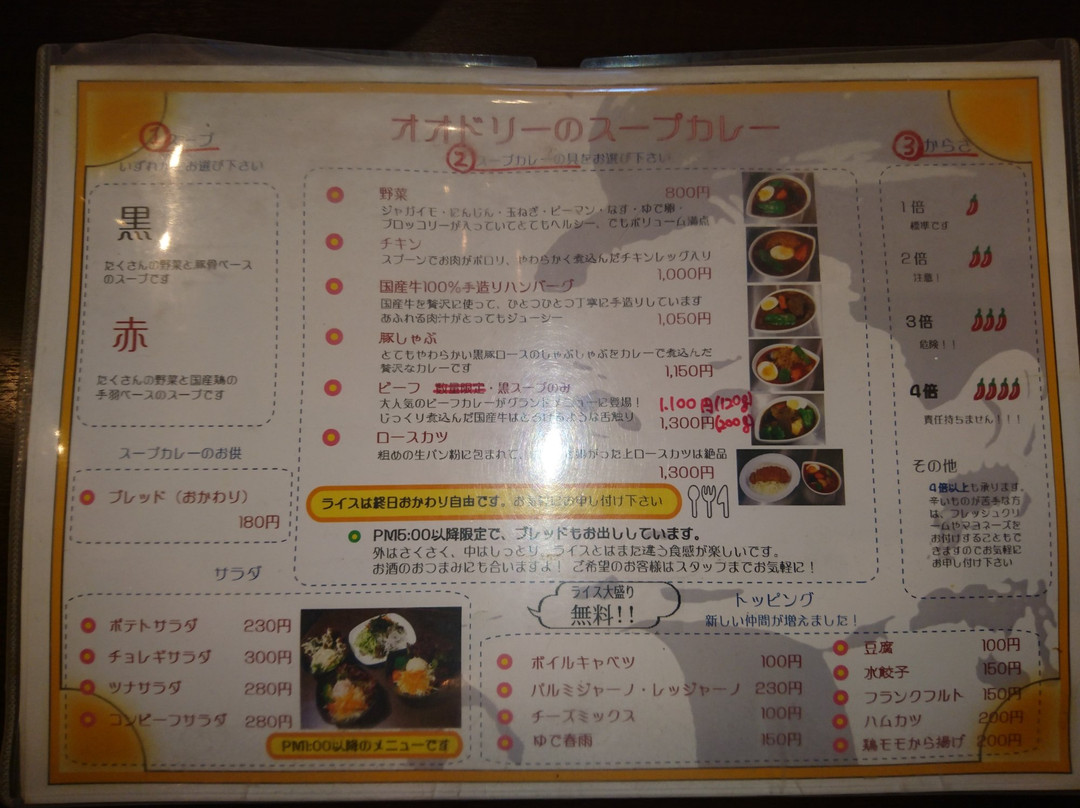 オオドリーのスープカレー
①スープ
いずれか お選び下さい
黒
たくさんの野菜と豚骨ベース
のスープです
赤
たくさんの野菜と国産鶏の
手羽ベースのスープです
スープカレーのお供
ブレッド（おかわり）
180円
②スープカレーの具をお選び下さい
野菜 800円
ジャガイモ・にんじん・玉ねぎ・ピーマン・なす・ゆで卵・
ブロッコリーが入っていてとてもヘルシー、でもボリューム満点
チキン
スプーンでお肉がポロリ、やわらかく煮込んだチキンレッグ入り
1,000円
国産牛100%手造りハンバーグ
国産牛を贅沢に使って、ひとつひとつ丁寧に手造りしています
あふれる肉汁がとってもジューシー 1,050円
豚しゃぶ
とてもやわらかい黒豚ロースのしゃぶしゃぶをカレーで煮込んだ
贅沢なカレーです 1,150円
ビーフ 数量限定・黒スープのみ
大人気のビーフカレーがグランドメニューに登場！ 1.100円(120g)
じっくり煮込んだ国産牛は ような舌触り 1,300円(200g)
ロースカツ
粗めの生パン粉に包まれて、 がった上ロースカツは絶品
1,300円
ライスは終日おかわり自由です。お お申し付け下さい
PM5:00以降限定で、ブレッドもお出ししています。
外はさくさく、中はしっとり、ライスとはまた違う食感が楽しいです。
お酒のおつまみにも合いますよ！ ご希望のお客様はスタッフまでお気軽に！
③からさ
1倍
標準です
2倍
注意！
3倍
危険！！
4倍
責任持ちません！！！
その他
4倍以上も承ります。
辛いものが苦手な方
は、フレッシュクリ
ームやマヨネーズを
お付けすることもで
きますのでお気軽に
お申し付け下さい
サラダ
ポテトサラダ 230円
チョレギサラダ 300円
ツナサラダ 280円
コンビーフサラダ 280円
PM1:00以降のメニューです
ライス大盛り
無料!!
トッピング
新しい仲間が増えました！
ボイルキャベツ 100円
パルミジャーノ・レッジャーノ 230円
チーズミックス 100円
ゆで春雨 150円
豆腐 100円
水餃子 150円
フランクフルト 150円
ハムカツ 200円
鶏モモから揚げ 200円